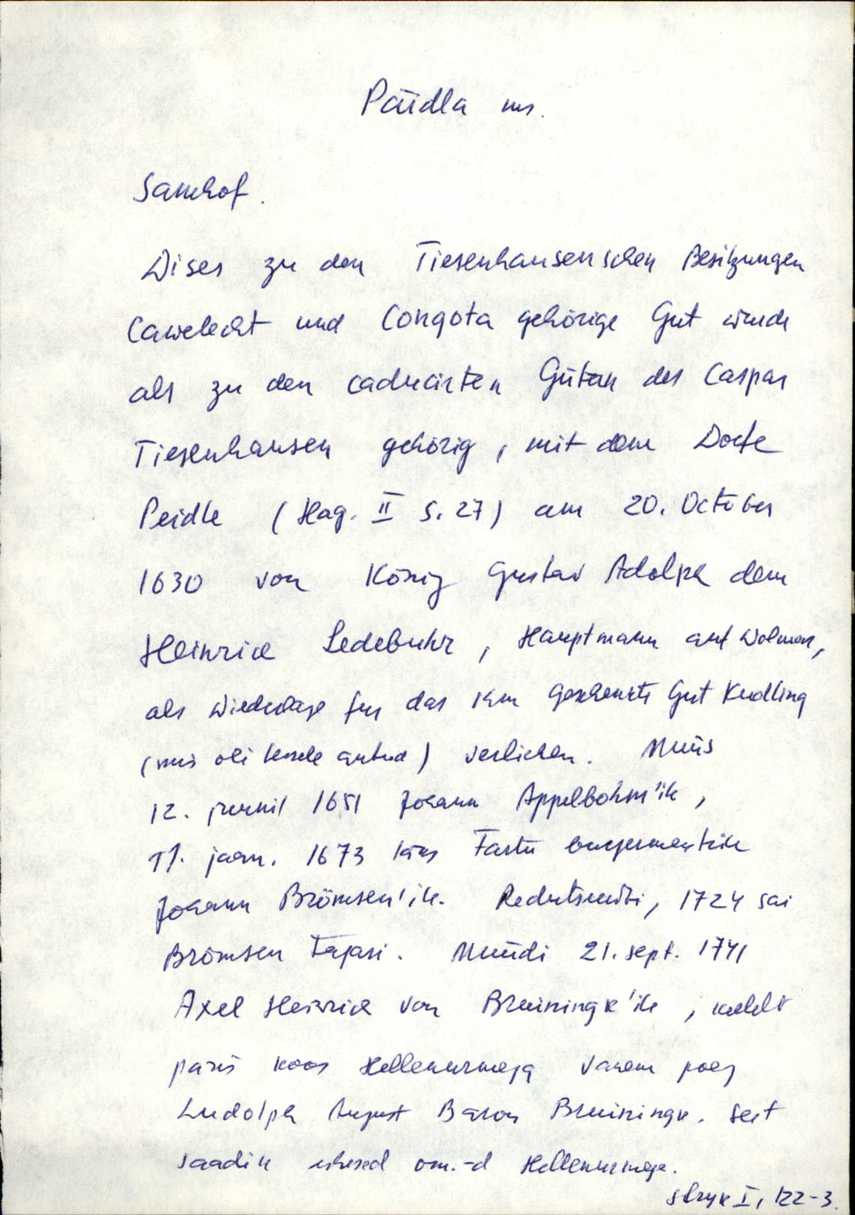 Päidla ms.
Samhof.
Dises zu den Tiesenhausenschen Besitzungen
Cawelecht und Congota gehörige Gut wurde
als zu den caducirten Gütern des Caspar
Tiesenhausen gehörig, mit dem Dorfe
Peidle (Hag. II S. 27) am 20. October
1630 von König Gustav Adolph dem
Heinrich Ledebuhr, Hauptmann auf Wolmar,
als Wiederlage für das ihm geschenkte Gut Kudling
(mis oli teisele antud) verliehen. Müüs
12. juunil 1651 Johann Appelbohm'ile,
17. jaan. 1673 läks Tartu burgermeistrile
Johann Brömsen'ile. Redutseeriti, 1724 sai
Brömsen tagasi. Müüdi 21. sept. 1741
Axel Heinrich von Bruiningk'ile, kellelt
päris koos Hellenurmega vanem poeg
Ludolph August Baron Bruiningk. Sest
saadik ühised om.-d Hellenurmega.
Stryk I, 122-3.